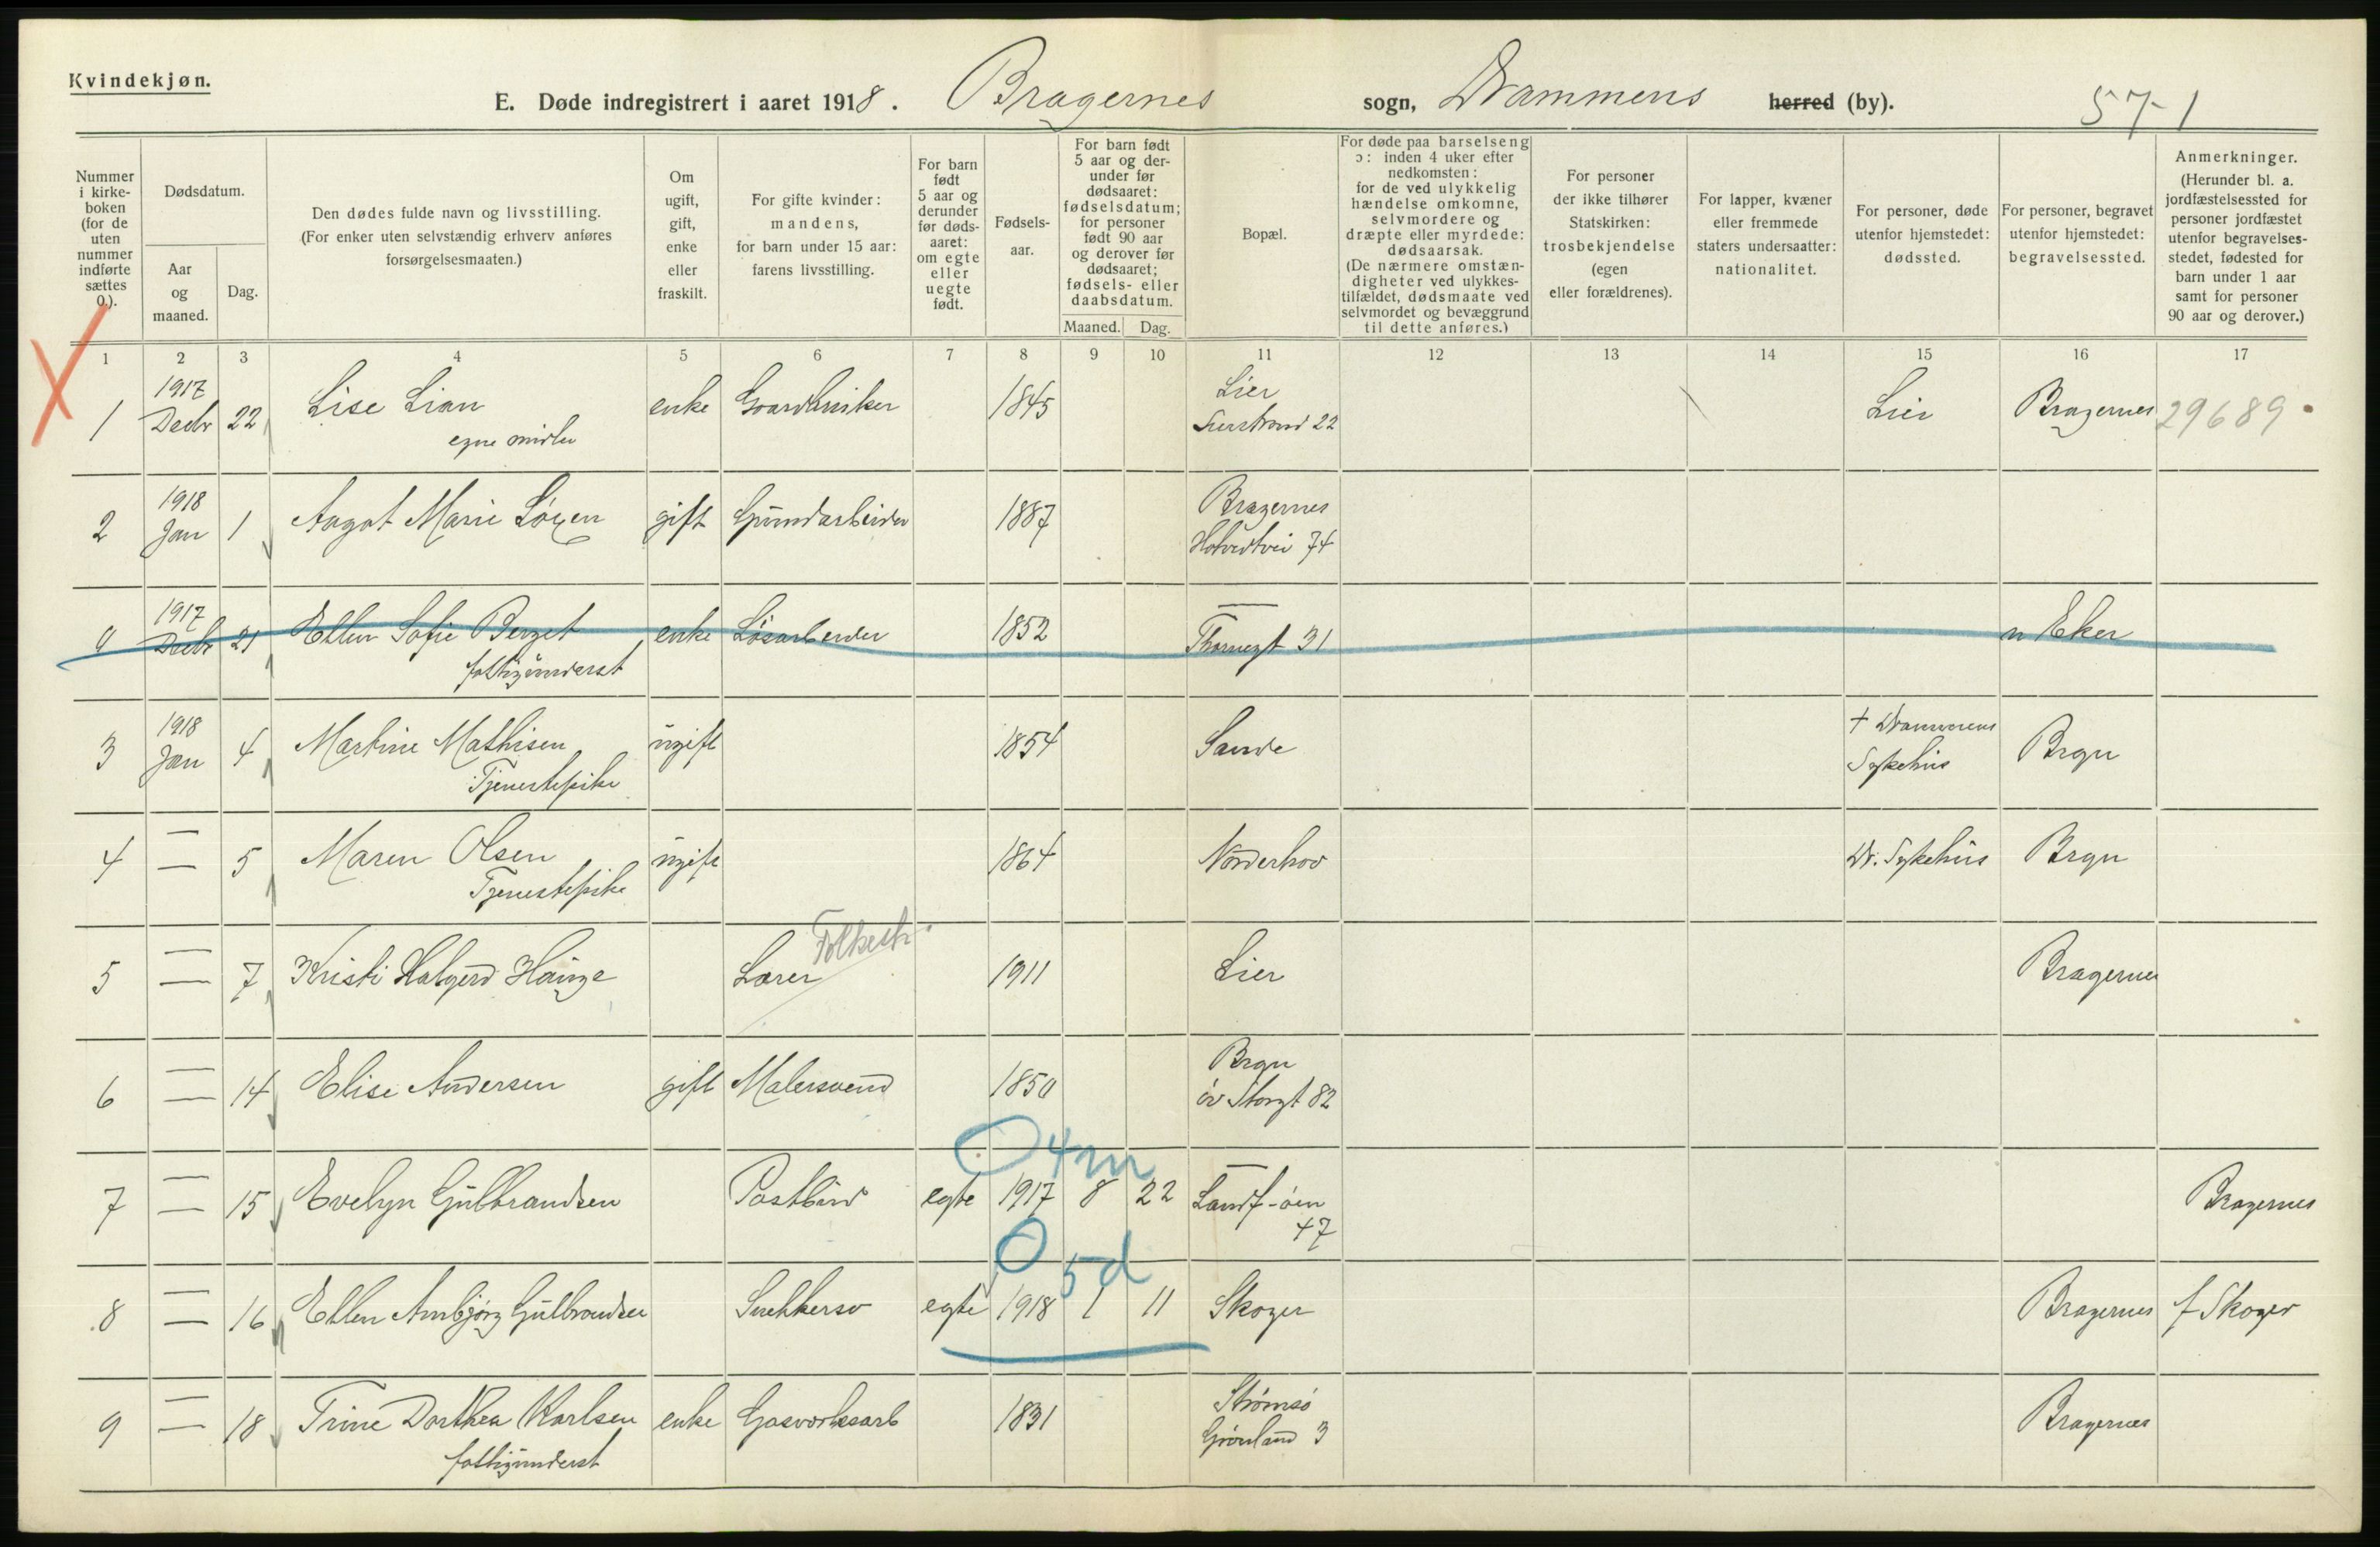 Kvindekjøn.
E. Døde indregistrert i aaret 1918. Bragernes sogn, Drammens herred (by). 57-1
Nummer i kirke-boken (for de uten nummer indførte sættes 0.).
Dødsdatum.
Aar og maaned.
Dag.
Den dødes fulde navn og livsstilling.
(For enker uten selvstændig erhverv anføres forsørgelsesmaaten.)
Om ugift, gift, enke eller fraskilt.
For gifte kvinder: mandens, for barn under 15 aar: farens livsstilling.
For barn født 5 aar og derunder før døds-aaret: om egte eller uegte født.
Fødsels-aar.
For barn født 5 aar og der-under før dødsaaret: fødselsdatum; for personer født 90 aar og derover før dødsaaret; fødsels- eller daabsdatum.
Maaned. Dag.
Bopæl.
For døde paa barselseng ɔ: inden 4 uker efter nedkomsten: for de ved ulykkelig hændelse omkomne, selvmordere og dræpte eller myrdede: dødsaarsak.
(De nærmere omstæn-digheter ved ulykkes-tilfældet, dødsmaate ved selvmordet og bevæggrund til dette anføres.)
For personer der ikke tilhører Statskirken: trosbekjendelse (egen eller forældrenes).
For lapper, kvæner eller fremmede staters undersaatter: nationalitet.
For personer, døde utenfor hjemstedet: dødssted.
For personer, begravet utenfor hjemstedet: begravelsessted.
Anmerkninger.
(Herunder bl. a. jordfæstelsessted for personer jordfæstet utenfor begravelses-stedet, fødested for barn under 1 aar samt for personer 90 aar og derover.)
1 2 3 4 5 6 7 8 9 10 11 12 13 14 15 16 17
X
1 1917 Decbr 22 Lise Lian enke Gaardbruker 1845 Lier Lierstrand 22 Lier Bragernes 29689
egne midler
2 1918 Jan 1 Aagot Marie gift Grundarbeider 1887 Bragernes Hotvedtvei 74
0 1917 Decbr 21 Ellen Sofie Berget enke Løsarbeider 1852 — Thornegt 31 n Eker
fattigunderst
3 1918 Jan 4 Martine Mathisen ugift 1854 Sande + Drammens Sykehus Brgn
Tjenestepike
4 — — 5 Maren Olsen ugift 1864 Norderhov Dr. Sykehus Brgn
Tjenestepike
5 — — 7 Kristi Halgerd Hauge Lærer Folkesk. 1911 Lier Bragernes
6 — — 14 Elise Andersen gift Malersvend 1850 Brgn øv Storgt 82
0 4m
7 — — 15 Evelyn Gulbrandsen Postbud egte 1917 8 22 — Landf-øen 47 Bragernes
0 5d
8 — — 16 Ellen Annbjørg Gulbrandsen Snekkersv egte 1918 1 11 Skoger Bragernes f Skoger
9 — — 18 Trine Dorthea Karlsen enke Gasverksarb 1831 Strømsø Grønland 3 Bragernes
fattigunderst